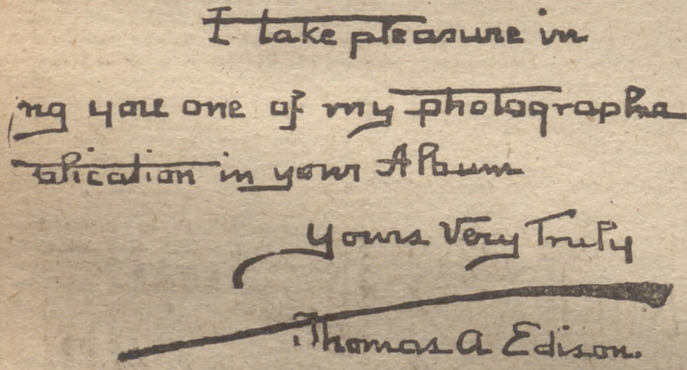 I take pleasure in
ng you one of my photographs
blication in your Album
Yours Very Truly
Thomas A Edison.